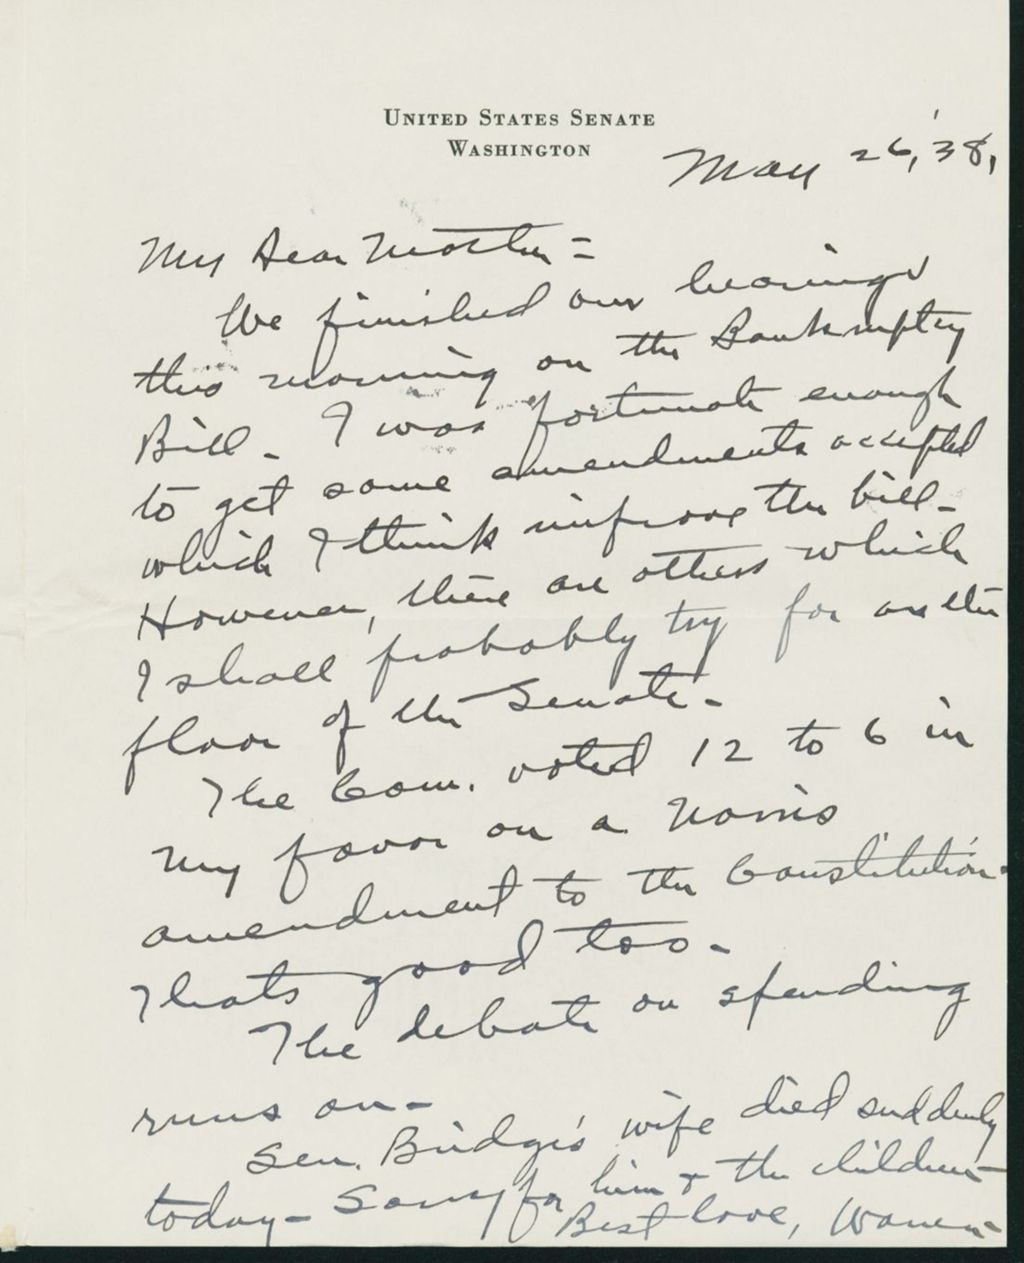 UNITED STATES SENATE
WASHINGTON
May 26, '38,
My Dear Mother =
We finished our hearings
this morning on the Bankruptcy
Bill - I was fortunate enough
to get some amendments accepted
which I think improve the bill -
However, there are others which
I shall probably try for on the
floor of the Senate. -
The Com. voted 12 to 6 in
my favor on a Norris
amendment to the Constitution.
Thats good too -
The debate on spending
runs on -
Sen. Bridge's wife died suddenly
today - Sorry for him & the children -
Best love, Warren -